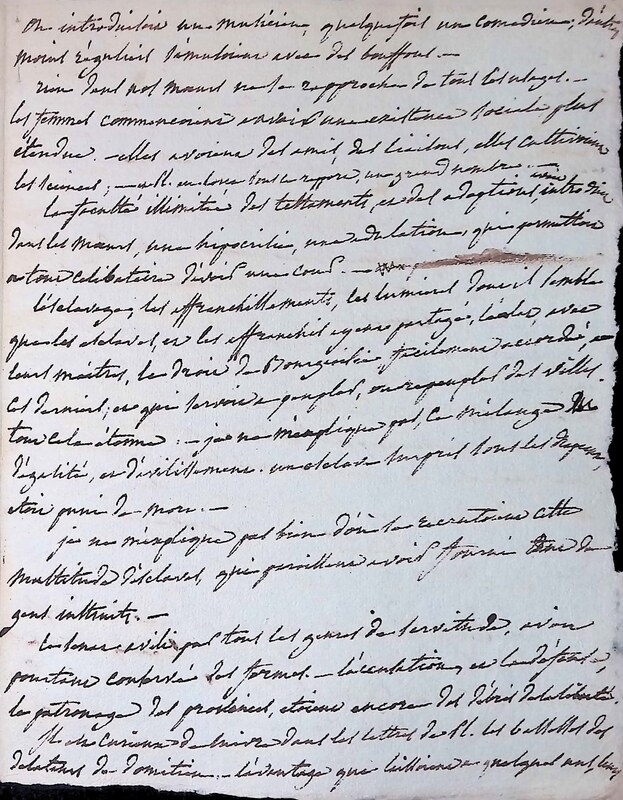 On introduisoit un musicien, quelquefois un comedien, d'autres
moins réguliers s'amusoient avec des bouffons. —
rien dans nos mœurs ne se rapproche de tous les usages. —
les femmes commencoient a avoir une existence sociale plus
étendue. — elles avoient des amis, des liaisons, elles cultivoient
les sciences; — en donne sous ce rapport, un grand nombre. —
la faculté illimitée des testaments, et des adoptions, avoit introduit
dans les mœurs, une hipocrisie, une adulation, qui permettoit
a tout celibataire d'avoir une cour. —
l'esclavage, les affranchissements, les lumieres dont il semble
que les esclaves, et les affranchis ayent partagé, l'éclat, avec
leurs maitres, le droit de Bourgeoisie facilement accordé a
ces derniers; et qui servoit a peupler, ou repeupler des villes.
tout cela étonne. — je ne m'explique pas, ce mélange
d'égalité, et d'avilissement. un esclave surpris sous les drapeaux,
etoit puni de mort. —
je ne m'explique pas bien d'où se recrutoient cette
multitude d'esclaves, qui paroissent avoir fourni tant de
gens instruits. —
le senat avili par tous les genres de servitude, avoit
pourtant conservé des formes. — l'accusation, et la défense,
le patronage des provinces, etoient encore des débris de la liberté.
Il est curieux de suivre dans les lettres de Pl. les bassesses des
delateurs de domitien. — l'avantage que laissoient a quelques uns, leurs